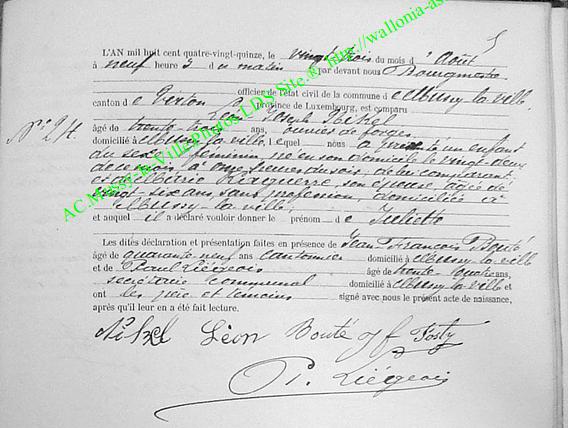 5
L'AN mil huit cent quatre-vingt-quinze, le vingt trois du mois d'Août
à neuf heures du matin par devant nous Bourgmestre
officier de l'état civil de la commune de Mussy-la-ville
canton de Virton province de Luxembourg, est comparu
Léon Joseph
N° 24.
âgé de trente ans, ouvrier de forges
domicilié à Mussy-la-ville. Lequel nous a présenté un enfant
du sexe féminin, né en son domicile le vingt-deux
de ce mois, à onze heures du soir, de lui comparant,
et de Marie son épouse, âgée de
vingt six ans sans profession, domiciliée à
Mussy-la-ville
et auquel il a déclaré vouloir donner le prénom de Juliette
Les dites déclaration et présentation faites en présence de Jean François Bouté
âgé de quarante neuf ans cantonnier domicilié à Mussy-la-ville
et de Paul Liégeois âgé de trente ans,
secrétaire communal domicilié à Mussy-la-ville et
ont les père et témoins signé avec nous le présent acte de naissance,
après qu'il leur en a été fait lecture.
Léon Bouté J f Posty
P. Liégeois
AC.Mussy-la-Ville Photos LDS Site.® http://wallonia-as